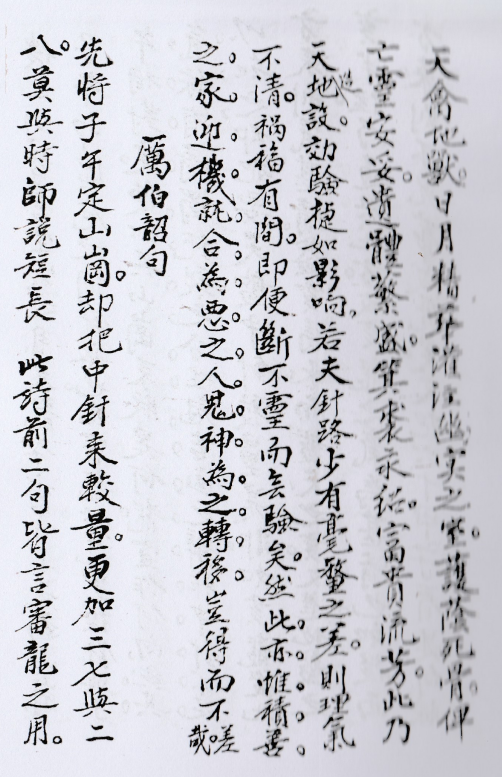 天禽地獸。日月精華灌注幽冥之室。護蔭死骨。俾
亡靈安妥。遺體蕃盛。箕裘永紹。富貴流芳。此乃
天造地設。効驗捷如影响。若夫針路少有毫釐之差。則理氣
不清。禍福有間。即便斷不靈而無驗矣。然此亦惟積善。
之家迎機就合。為惡之人。鬼神為之轉移。豈得而不差哉。
厲伯韶句
先將子午定山崗。却把中針來較量。更加三七與二
八。莫與時師說短長 此詩前二句皆言審龍之用。